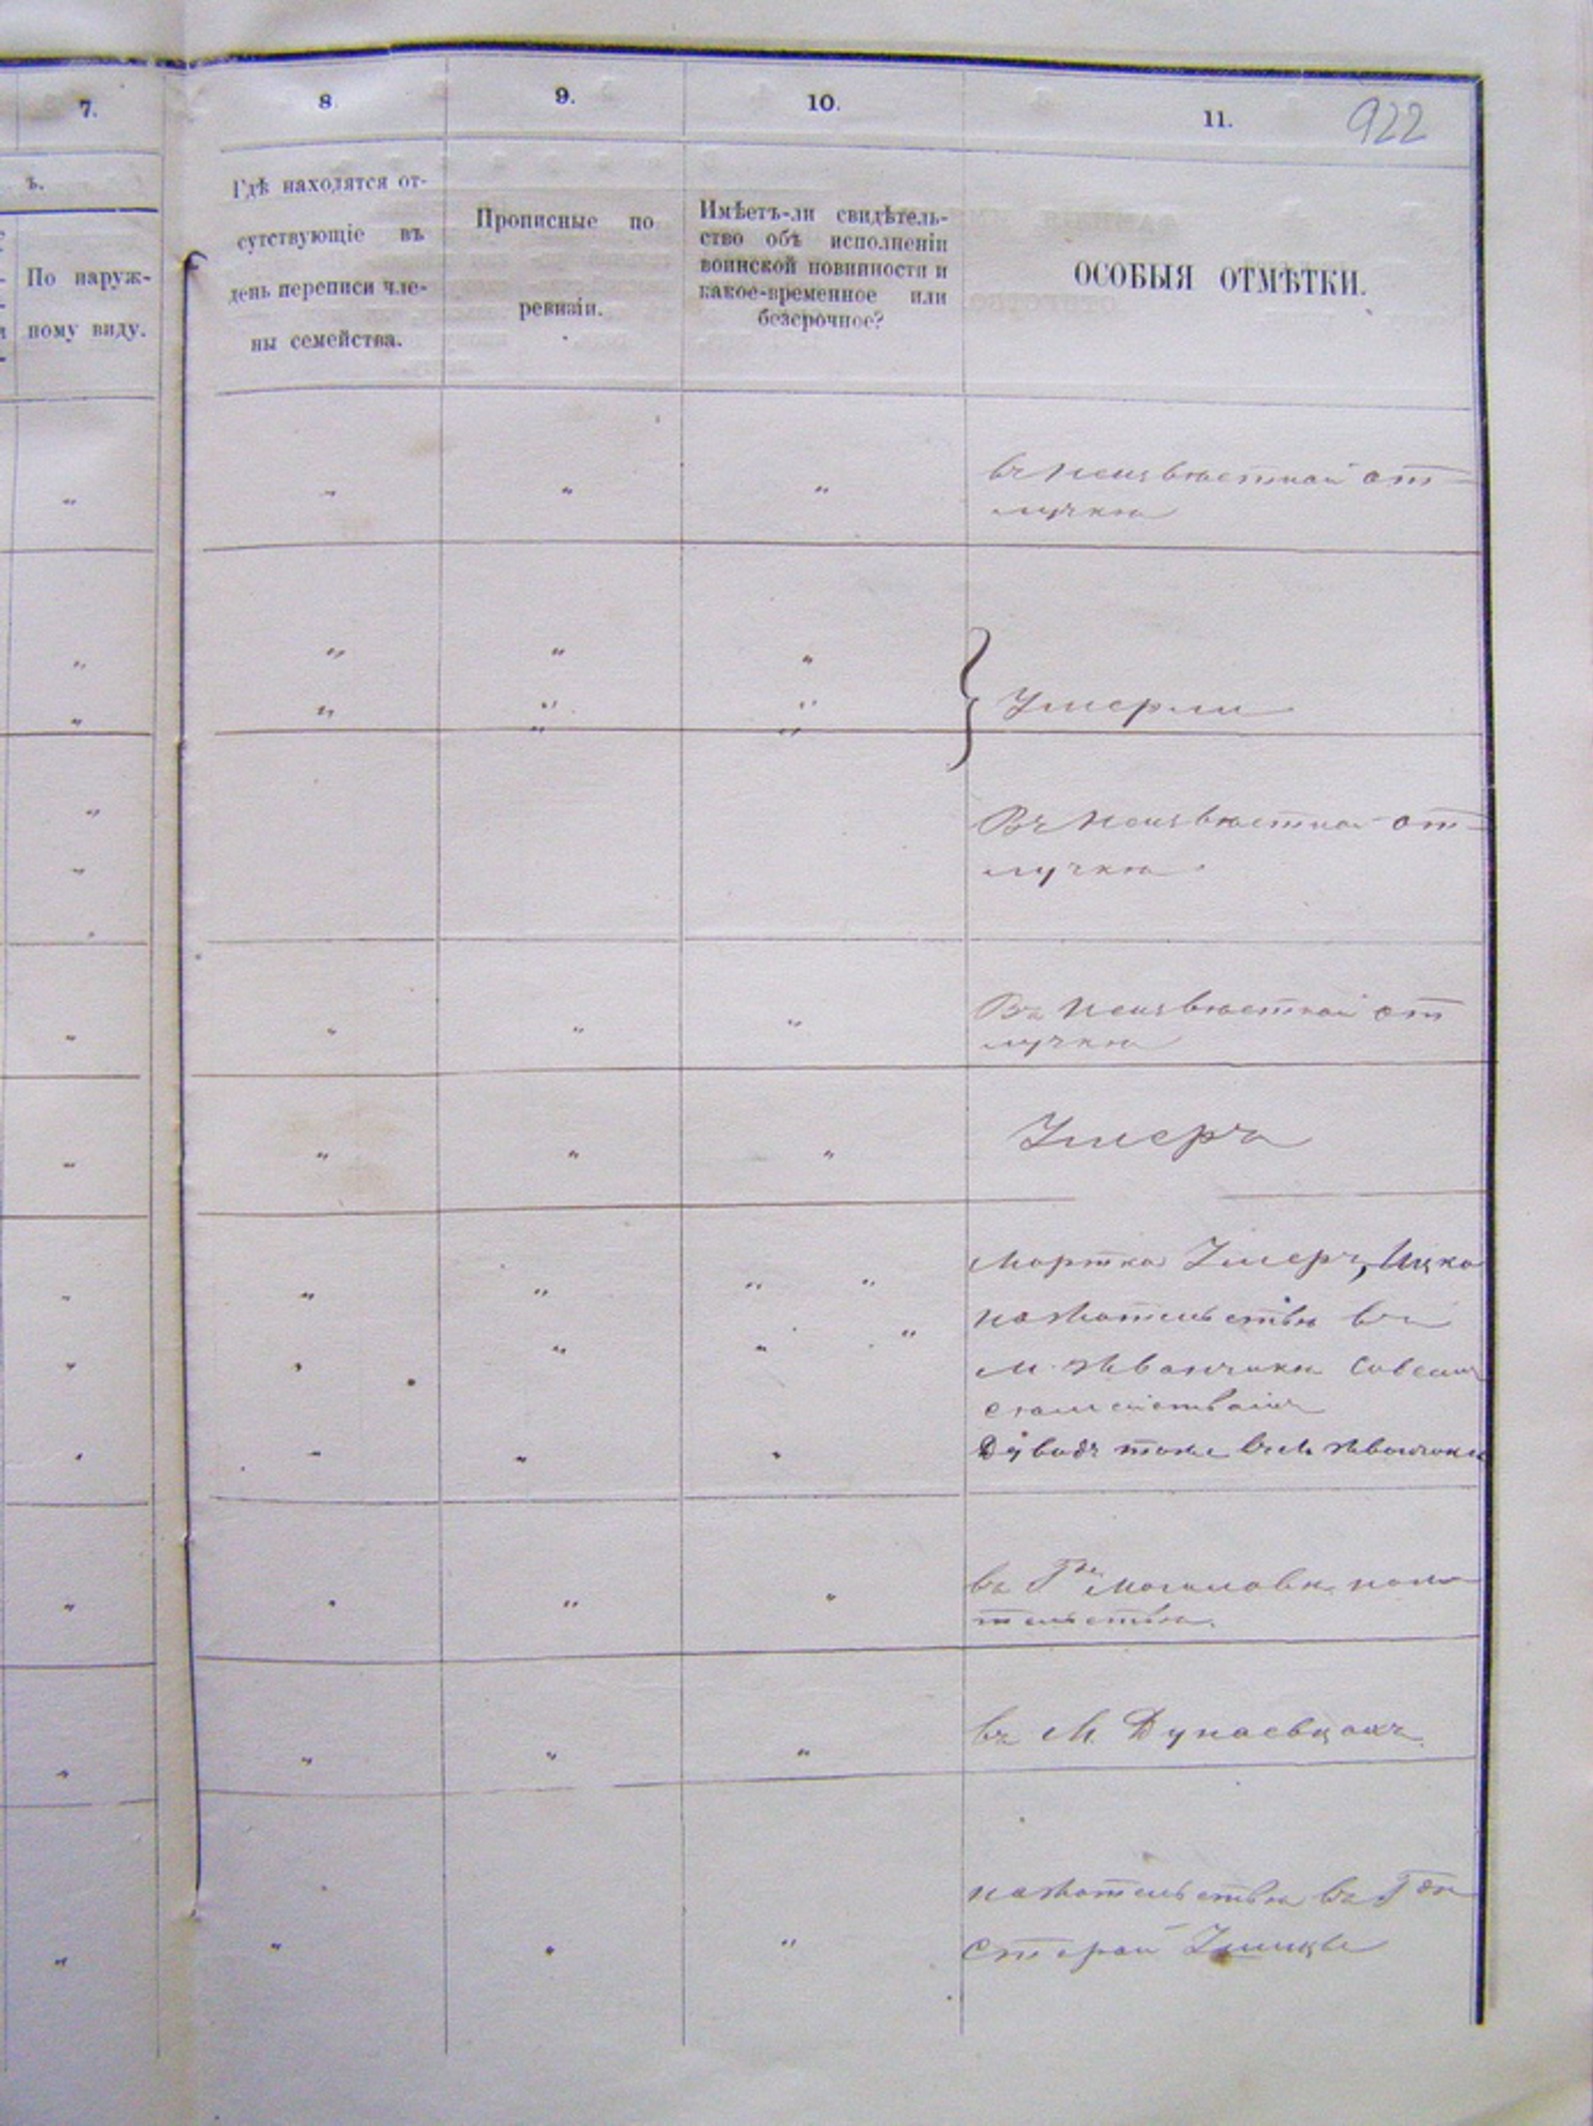 7.
8.
9.
10.
11.
922
ъ.
По наруж-
ному виду.
Гдѣ находятся от-
сутствующіе въ
день переписи чле-
ны семейства.
Прописные по
ревизіи.
Имѣетъ-ли свидѣтель-
ство объ исполненіи
воинской повинности и
какое-временное или
безсрочное?
ОСОБЫЯ ОТМѢТКИ.
въ неизвѣстной от-
лучкѣ
Умерли
Въ неизвѣстной от-
лучкѣ
Въ неизвѣстной от
лучкѣ
Умеръ
Мортко Умеръ, Ицко
на жительствѣ въ
м. Жванчикѣ Совсемъ
семействомъ
Дувидъ тоже въ м. Жванчикѣ
въ Гдѣ Могилевѣ на жи
тельствѣ.
въ М. Дунаевцахъ
на жительствѣ въ Гдѣ
Старой Ушицѣ